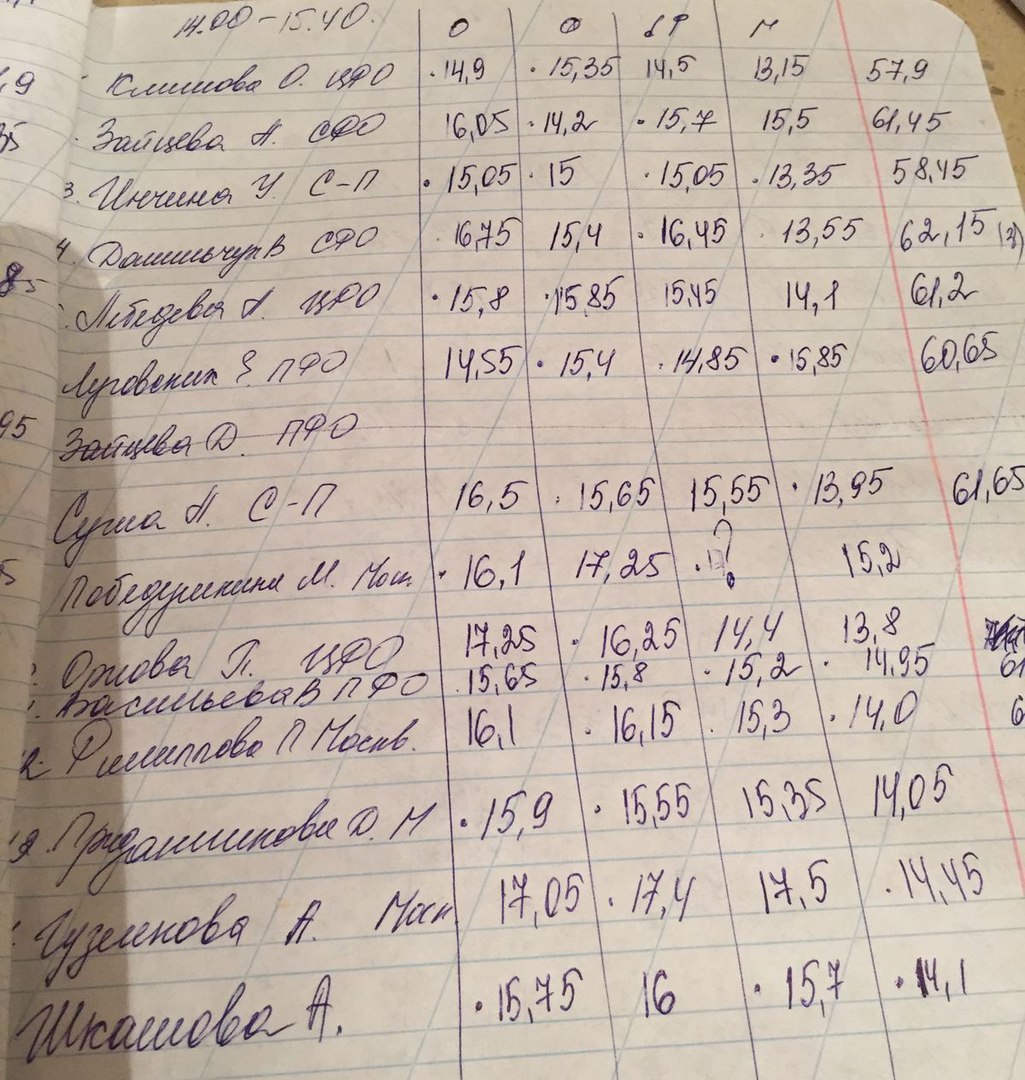 14.00-15.40. О Ф БР М
,9 Климова О. ЦФО 14,9 15,35 14,5 13,15 57,9
Зайцева А. СФО 16,05 14,2 15,7 15,5 61,45
3. Инчина У. С-П 15,05 15 15,05 13,35 58,45
4. Данильчук В СФО 16,75 15,4 16,45 13,55 62,15 (3)
85 Лебедева А. ЦФО 15,8 15,85 15,45 14,1 61,2
Луговских Е. ПФО 14,55 15,4 14,85 15,85 60,65
95 Зайцева Д. ПФО
А. С-П 16,5 15,65 15,55 13,95 61,65
М. Моск. 16,1 17,25 ? 15,2
Орлова П. ЦФО 17,25 16,25 14,4 13,8
Васильева В ПФО 15,65 15,8 15,2 14,95 61
2. Филиппова П Москв. 16,1 16,15 15,3 14,0 6
Приданникова Д. М 15,9 15,55 15,35 14,05
Гузенкова А. Моск 17,05 17,4 17,5 14,45
Шкатова А. 15,75 16 15,7 14,1